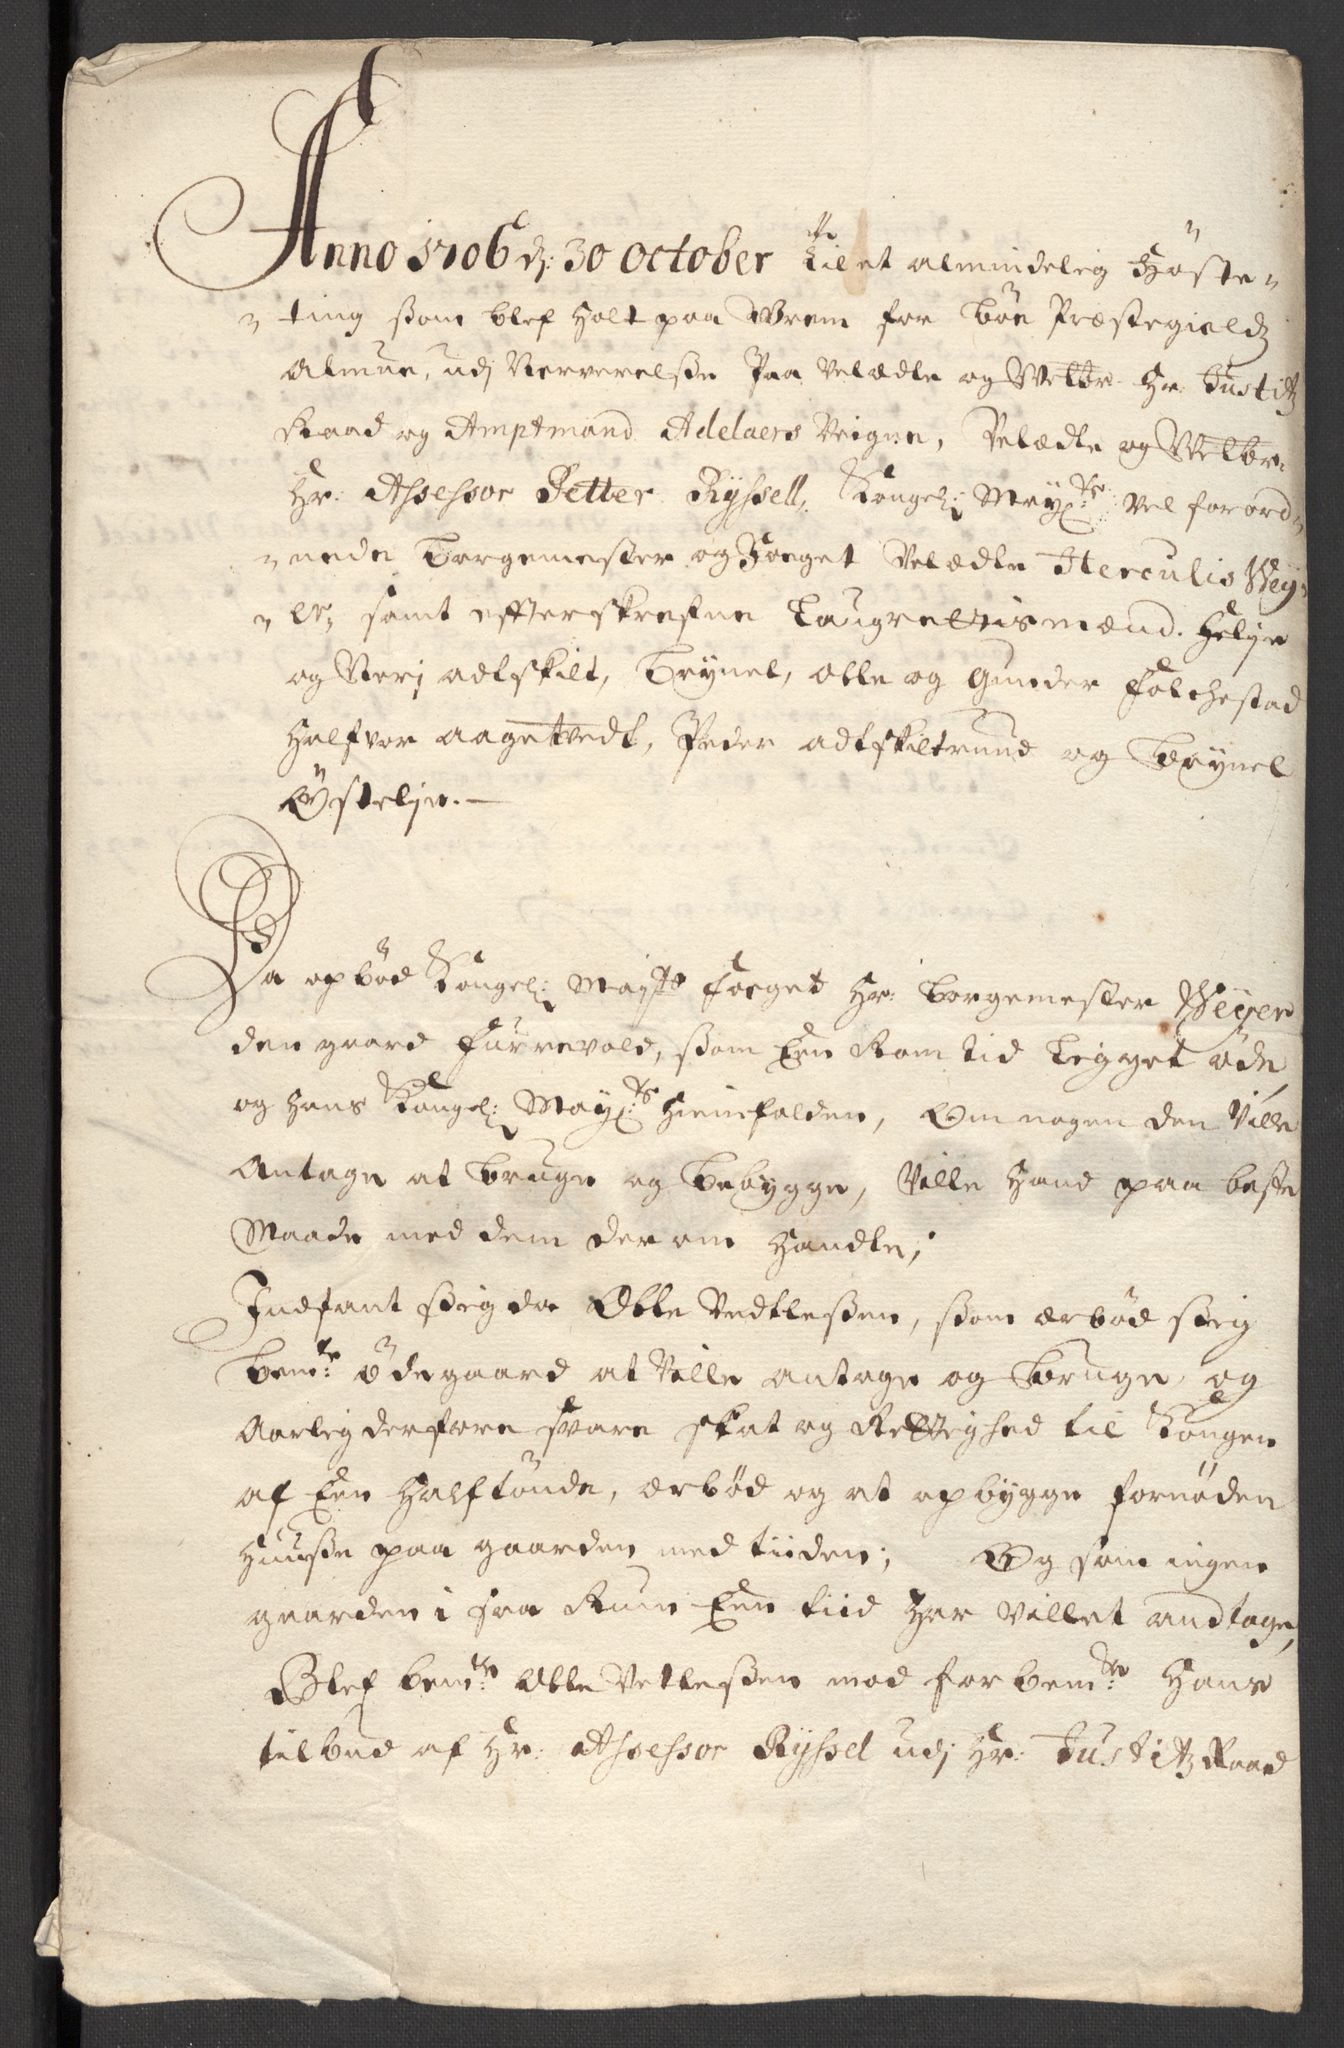 Anno 1706 d: 30 October Til et almindelig Høste-
ting ßom blef Holt paa Wrem for Bøe Præstegields
Almue, udj Nerverelße Paa Velædle og Welbr. Hr: Justitz
Raad og Amptmand Adelaers Veigne, Velædle og Welbr.
Hr: Assessor Petter Ryssell, Kongel: May:ts Vel forord-
nede Borgemester og Foeget Velædle Herculis Wey-
er, samt effterskrefne Laugrettismænd. Helje
og Verj adtskilt, Brynel, Olle og Gunder Folchestad
Halfvor Aagetvedt, Peder adtskiltruud og Brynel
Østelje.
Da opbød Kongel: Mayts Foeget Hr: Borgemester Weyer
den gaard Furrevald, ßom Een Rom tid Ligget øde,
og Hans Kongel: May:ts Hiemfalden, Om nogen den Ville
Antage at Bruge og Bebygge, Ville Hand paa beste
Maade med dem der om Handle;
Indfant ßeig da Olle Vedtleßen, ßom erbød ßeig
bem:te Ødegaard at Ville antage og Bruge, og
Aarlig derfore svare skat og Rettighed til Kongen
af Een Half tønde, erbød og at opbygge fornøden
Huuße paa gaarden med tiiden; Og som ingen
gaarden i saa Rum Een tiid Har Villet andtage,
Blef bem:te Olle Vetleßen mod for bem:te Hans
tilbud af Hr: Assessor Ryssel udj Hr: Justitz Raad